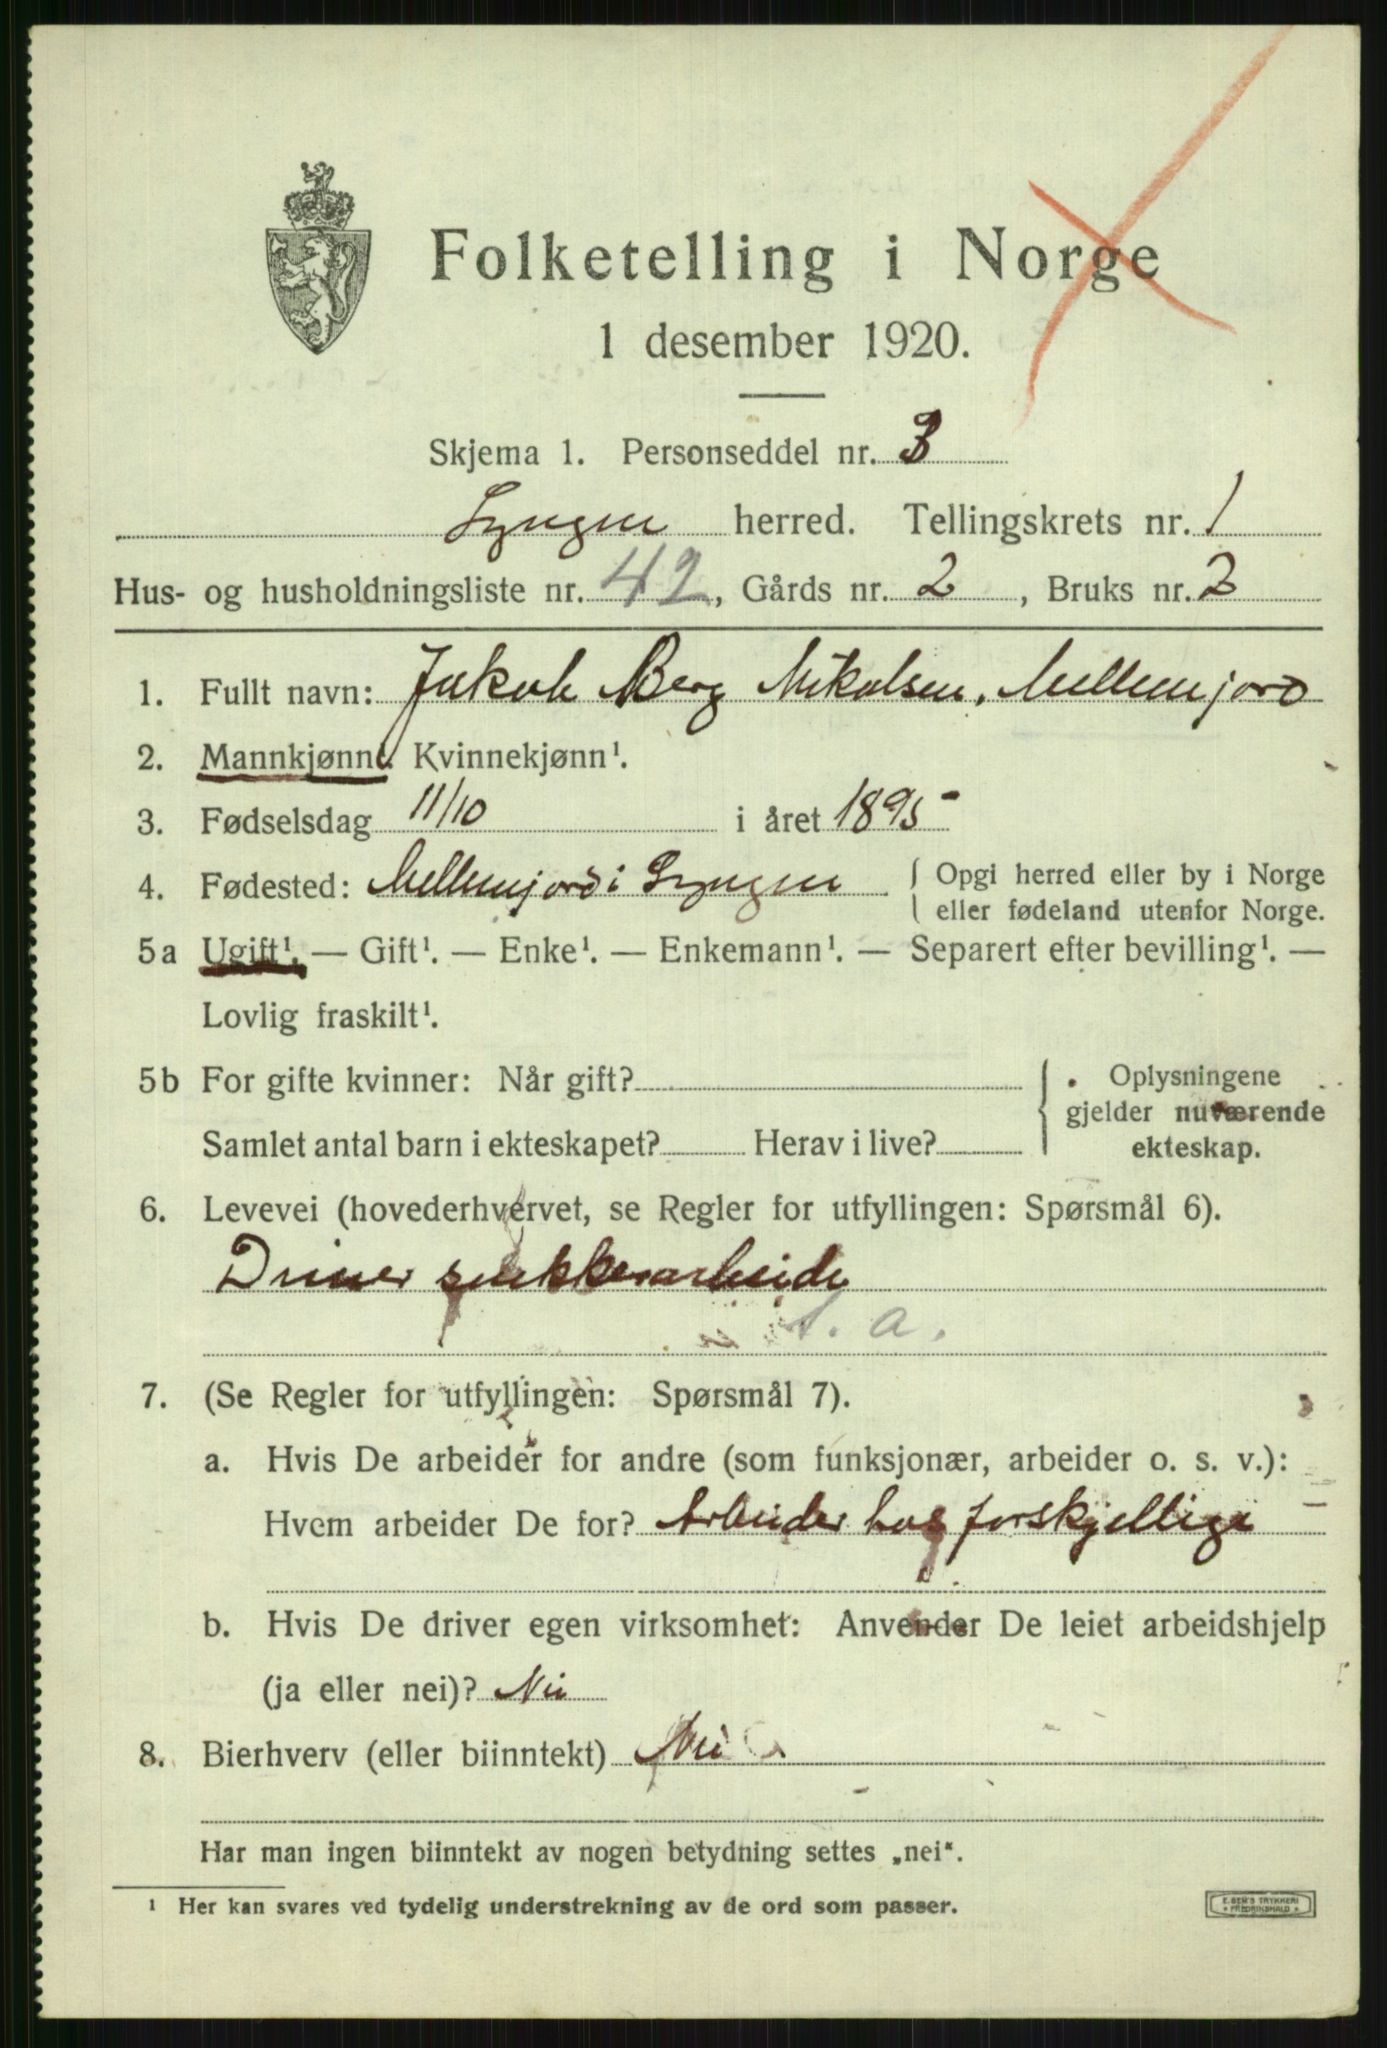 Folketelling i Norge
1 desember 1920.
Skjema 1. Personseddel nr. 3
Lyngen herred. Tellingskrets nr. 1
Hus- og husholdningsliste nr. 42, Gårds nr. 2, Bruks nr. 2
1. Fullt navn: Jakob Berg Nikolsen, Mellemjord
2. Mannkjønn¹. Kvinnekjønn¹.
3. Fødselsdag 11/10 i året 1895
4. Fødested: Mellemjord i Lyngen { Opgi herred eller by i Norge
eller fødeland utenfor Norge.
5a Ugift¹. — Gift¹. — Enke¹. — Enkemann¹. — Separert efter bevilling¹. —
Lovlig fraskilt¹.
5b For gifte kvinner: Når gift? { Oplysningene
gjelder nuværende
Samlet antal barn i ekteskapet? Herav i live? ekteskap.
6. Levevei (hovederhvervet, se Regler for utfyllingen: Spørsmål 6).
Driver snekkerarbeide
a.
7. (Se Regler for utfyllingen: Spørsmål 7).
a. Hvis De arbeider for andre (som funksjonær, arbeider o. s. v.):
Hvem arbeider De for? Arbeider hos forskjellige
b. Hvis De driver egen virksomhet: Anvender De leiet arbeidshjelp
(ja eller nei)? Nei
8. Bierhverv (eller biinntekt) Nei
Har man ingen biinntekt av nogen betydning settes „nei“.
¹ Her kan svares ved tydelig understrekning av de ord som passer.
E. SEM'S TRYKKERI
* FREDRIKSHALD *